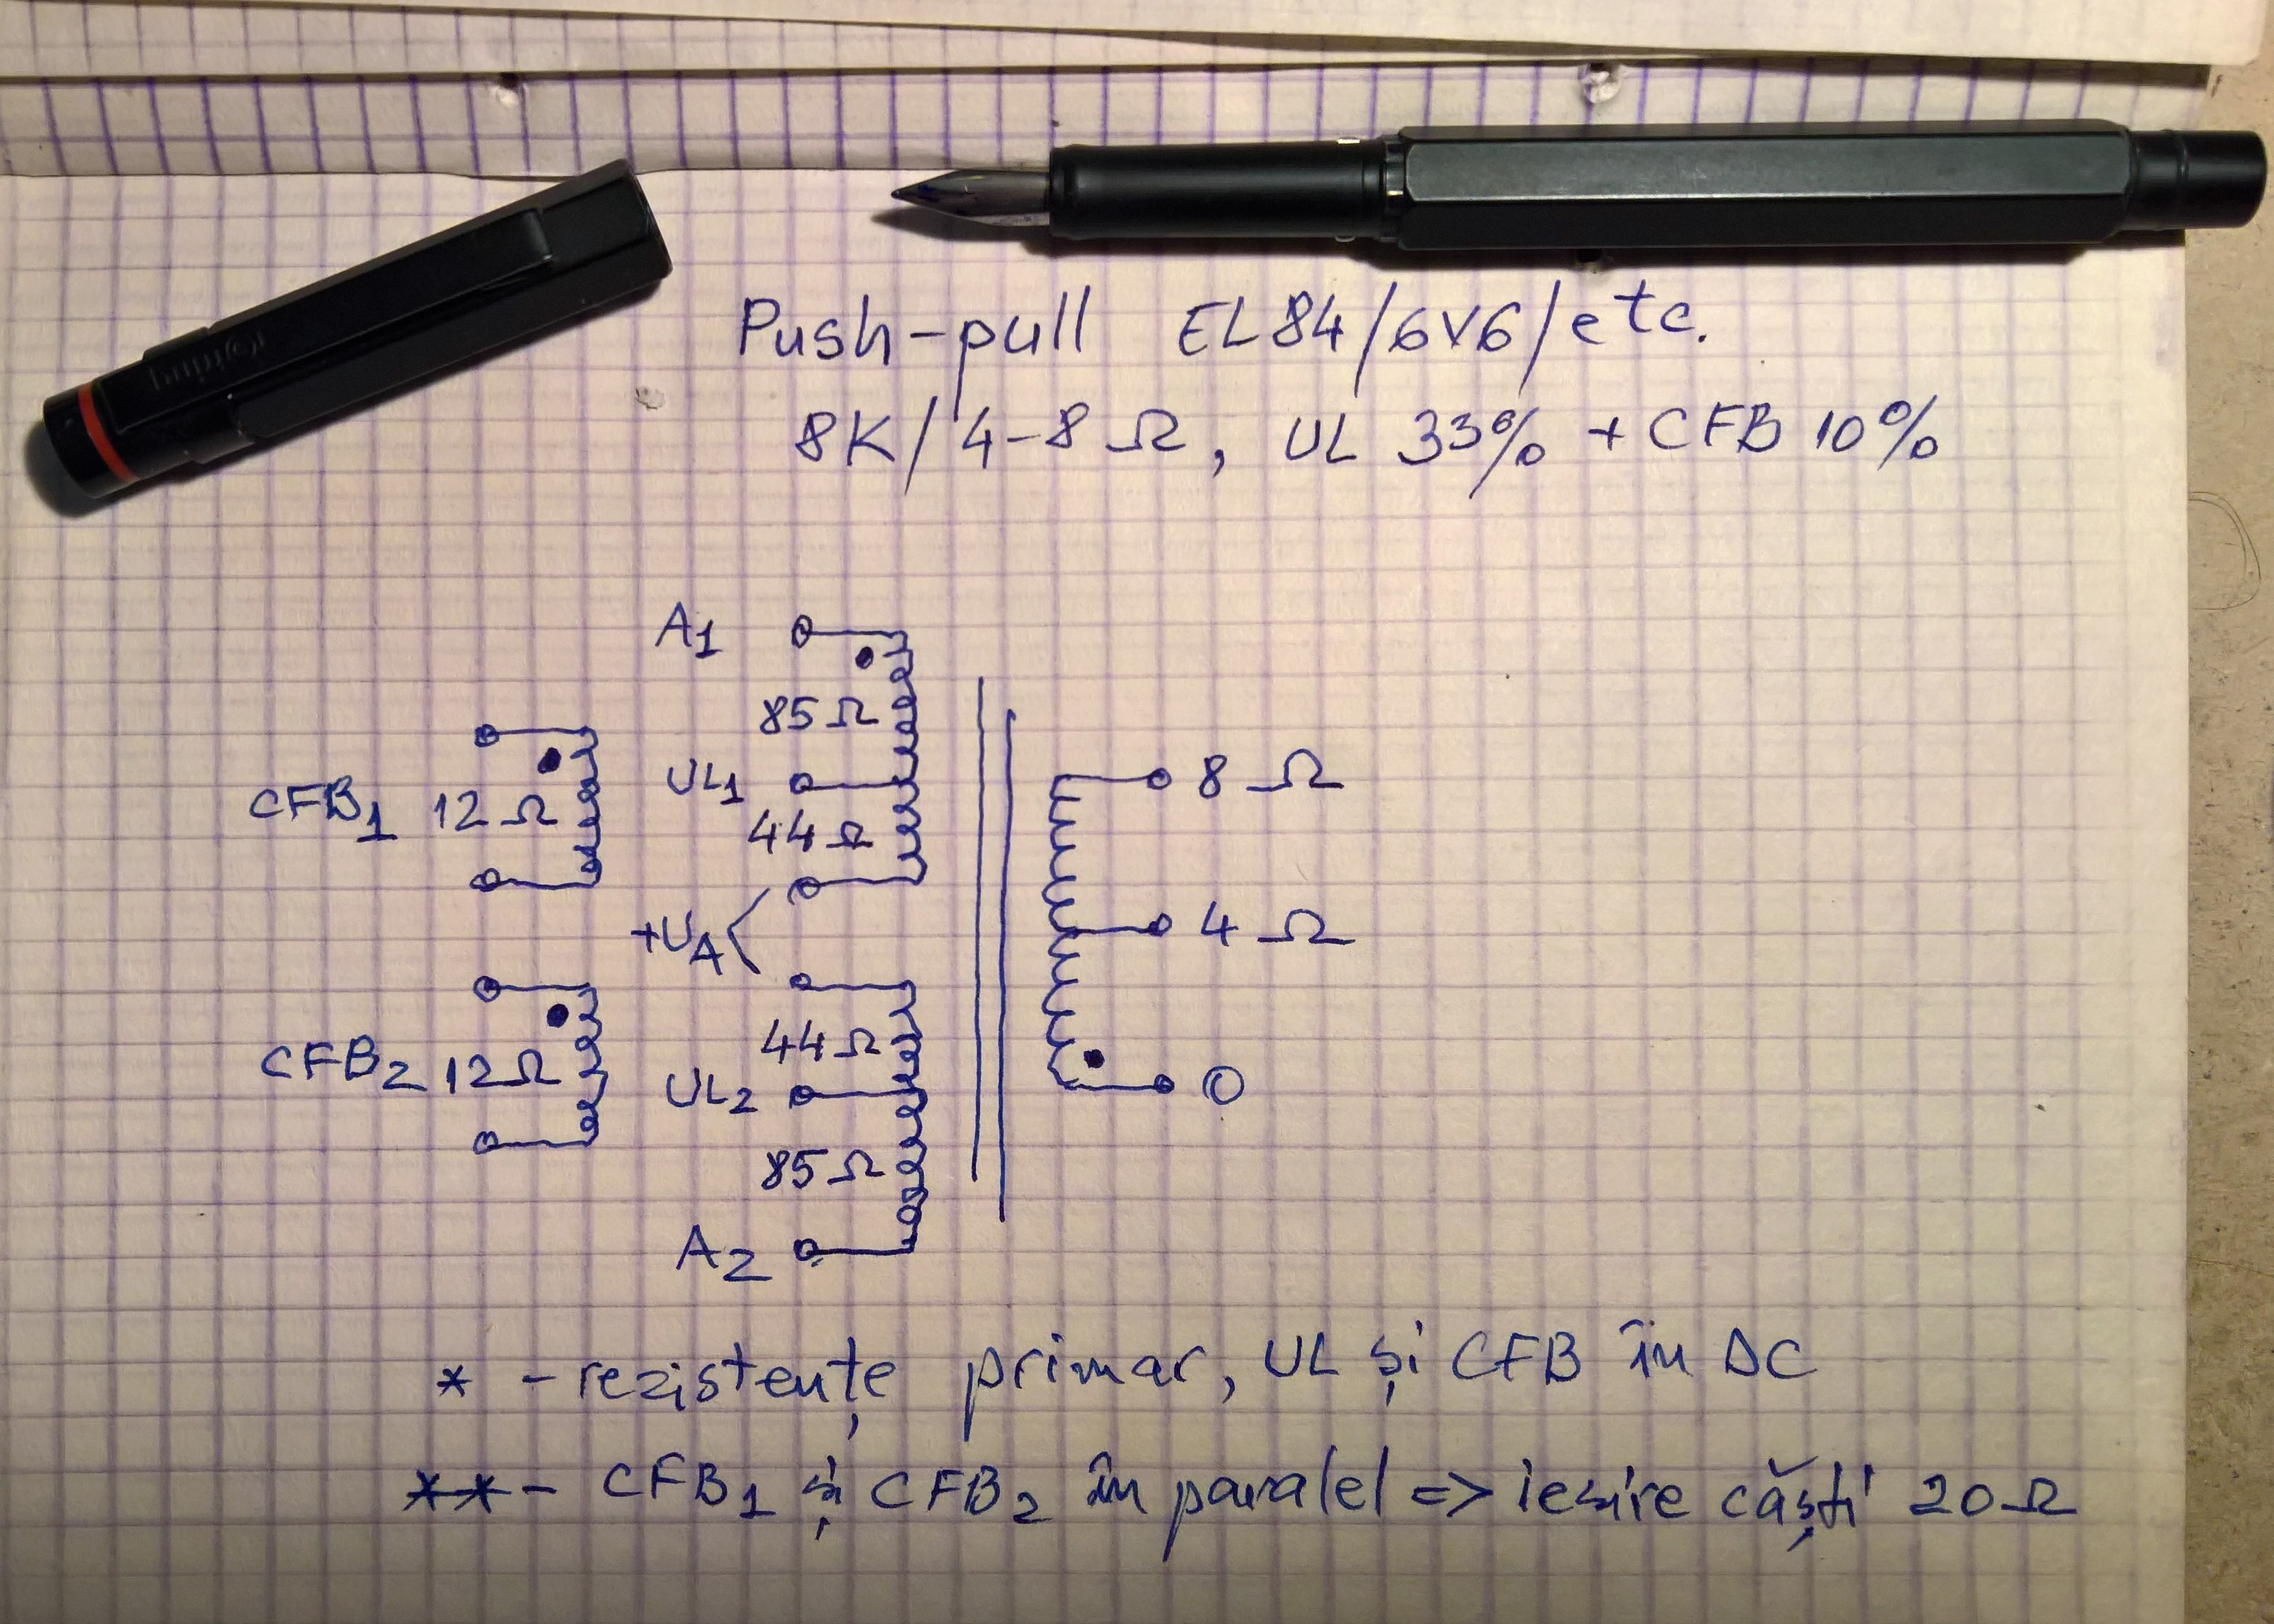 rotring
Push-pull EL84/6V6/etc.
8K/4-8 Ω, UL 33% + CFB 10%
A1
85 Ω
CFB1 12 Ω
UL1
44 Ω
8 Ω
+UA
4 Ω
CFB2 12 Ω
44 Ω
UL2
0
85 Ω
A2
* - rezistențe primar, UL și CFB în DC
** - CFB1 și CFB2 în paralel => iesire căști 20 Ω